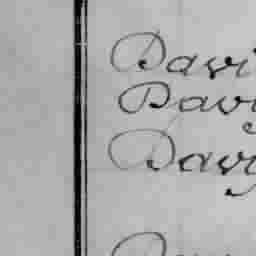 Davi
Davi
Davi